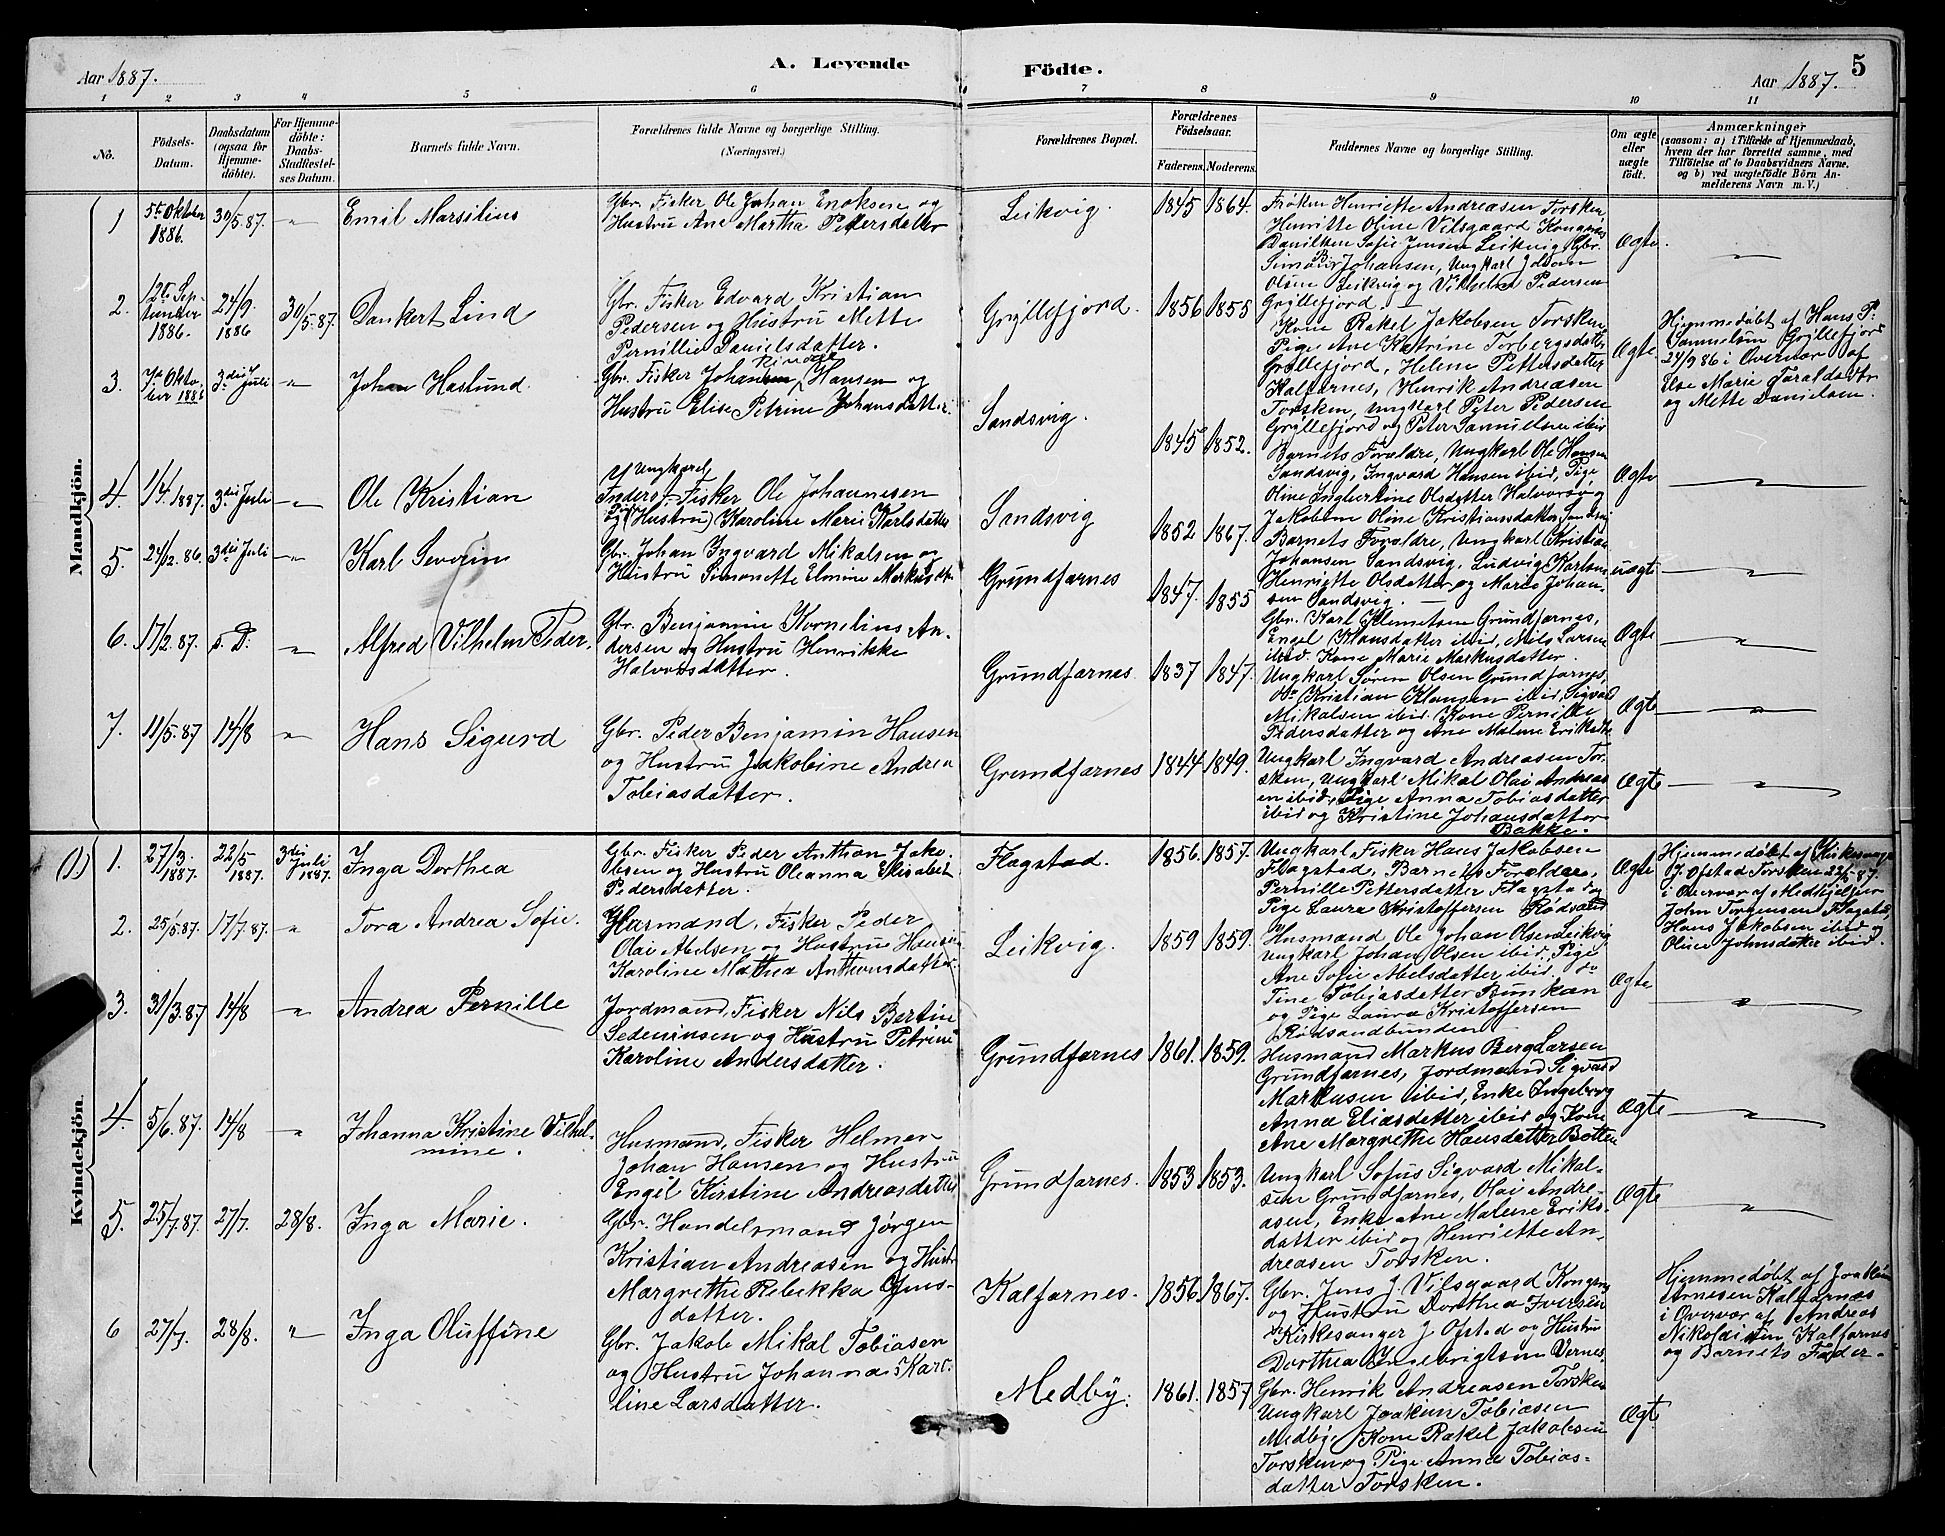 Aar 1887.
A. Levende
Födte.
5
Aar 1887.
1 2 3 4 5 6 7 8 9 10 11
No.
Födsels-
Datum.
Daabsdatum
(ogsaa for
Hjemme-
döbte).
For Hjemme-
döbte:
Daabs-
Stadfæstel-
ses Datum.
Barnets fulde Navn.
Forældrenes fulde Navne og borgerlige Stilling.
(Næringsvei.)
Forældrenes Bopæl.
Forældrenes
Födselsaar.
Faderens. Moderens.
Faddernes Navne og borgerlige Stilling.
Om ægte
eller
uægte
födt.
Anmærkninger
(saasom: a) i Tilfælde af Hjemmedaab,
hvem der har forrettet samme, med
Tilföielse af to Daabsvidners Navne,
og b) ved uægtefödte Börn An-
melderens Navn m. V.)
Mandkjön.
1
5te Oktober
1886.
30/5.87.
"
Emil Marsilius
Gbr. Fisker Ole Johan Enoksen og
Hustru Ane Martha Pedersdatter
Leikvig.
1845 1864.
Fröken Henriette Andreasen Torsken,
Henritte Oline Vilsgaard Kongsnes
Danilken Sofie Jensen Leikvig Gbr.
Simon Johansen, Ungkarl Johan
Olsen Leikvig og Vilhelm Pedersen
Gryllefjord.
Ægte.
"
2.
12te Sep-
tember
1886.
24/9.
1886
30/5.87.
Dankert Lind
Gbr. Fisker Edvard Kristian
Pedersen og Hustru Mette
Pernillie Danielsdatter.
Gryllefjord.
1856 1855
Kone Rakel Jakobsen Torsken,
Pige Ane Katrine Torbergsdatter
Gryllefjord, Helene Pettersdatter
Kalfarnes, Henrik Andreasen
Torsken, Ungkarl Peter Pedersen
Gryllefjord og Peter Samuelsen ibid
Ægte
Hjemmedøbt af Hans P.
Samuelsen Gryllefjord
24/9 86 i Overvær af
Else Marie Taraldsdtr
og Mette Danielsen.
3.
7de Okto-
ber 1886
3die Juli
"
Johan Haslund.
Gbr. Fisker Johan Hansen og
Hustru Elise Petrine Johansdatter.
Sandsvig.
1845 1852.
Barnets Forældre, Ungkarl Ole Hansen
Sandsvig, Ingvard Hansen ibid, Pige
Oline Ingbertine Olsdatter Halvorsö og
Jakobine Oline Kristiansdatter Sandsvi
Ægte
"
4.
1/4. 1887.
3die Juli
"
Ole Kristian
af Ungkarl,
Inders. Fisker Ole Johannesen
og (Hustru) Karoline Marie Karlsdatter
Sandsvig
1852 1867.
Barnets Forældre, Ungkarl Kristian
Johansen Sandsvig, Ludvig Karlsen
Henriette Olsdatter og Maria Johan-
sen Sandsvig.
uægte
"
5.
24/12. 86.
3die Juli
"
Karl Severin
Gbr. Johan Ingvard Mikalsen og
Hustru Simonette Elmine Markusdtr.
Grundfarnes
1847. 1855
Gbr. Karl Klemetsen Grundfarnes,
Engel Klausdatter ibid, Nils Larsen
ibid. Kone Marie Markusdatter.
Ægte
"
6.
17/2. 87.
s. D.
"
Alfred Vilhelm Peder.
Gbr. Benjamin Kornelius An-
dersen og Hustru Henrikke
Halvorsdatter.
Grundfarnes
1837 1847.
Ungkarl Sören Olsen Grundfarnes,
do Kristian Klausen ibid, Sigvard
Mikalsen ibid. Kone Pernille
Pedersdatter og Ane Malene Eriksdtr
Ægte
"
7.
11/5.87
14/8
"
Hans Sigurd
Gbr. Peder Benjamin Hansen
og Hustru Jakobine Andrea
Tobiasdatter.
Grundfarnes
1844 1849.
Ungkarl Ingvard Andreasen Tor-
sken, Ungkarl Mikal Olai Andreas
en ibid, Pige Anna Tobiasdatter
ibid og Kristine Johansdatter
Bakke.
Ægte
"
Kvindekjön.
(1)
1.
27/3.
1887.
22/5
1887.
3die
Juli
1887.
Inga Dorthea
Gbr. Fisker Peder Anthon Jako-
bsen og Hustru Oleanna Elisabet
Pedersdatter.
Flagstad.
1856. 1857.
Ungkarl Fisker Hans Jakobsen
Flagstad, Barnets Forældre,
Pernille Pettersdatter Flagstad og
Pige Laura Kristoffersen Rødsand
Ægte
Hjemmedøbt af Kirkesanger
J. Ofstad Torsken 22/5 87.
i Overvær af Medhjelper
John Jørgensen Flagstad,
Hans Jakobsen ibid og
Oline Johnsdatter ibid.
2.
25/5.87.
17/7.87.
"
Tora Andrea Sofie.
Husmand, Fisker Peder
Olai Abelsen og Hustru Hansine
Karoline Mathea Anthonsdatter.
Leikvig.
1859 1859.
Husmand Ole Johan Olsen Leikvig
Ungkarl Johan Olsen ibid. Pige
Ane Sofie Abelsdatter ibid, do
Tine Tobiasdatter Bunkan
og Pige Laura Kristoffersen
Rødsandbunden
Ægte
"
3.
31/3.87
14/8
"
Andrea Pernille
Jordmand, Fisker Nils Bertin
Sedeninsen og Hustru Petrine
Karoline Andersdatter.
Grundfarnes
1861. 1859.
Husmand Markus Berg Larsen
Grundfarnes, Jordmand Sigvard
Markusen ibid, Enke Ingeborg
Anna Eliasdatter ibid og Kone
Ane Margrethe Hansdatter Botten
Ægte
"
4.
5/6.87.
14/8
"
Johanna Kristine Vilhel-
mine.
Husmand, Fisker Helmer
Johan Hansen og Hustru
Engel Kirstine Andreasdatter
Grundfarnes.
1853 1853.
Ungkarl Sofus Sigvard Mikal-
sen Grundfarnes, Olai Andre-
asen, Enke Ane Malene Eriks-
datter ibid og Henriette An-
dreasen Torsken.
Ægte
"
5.
25/7.87.
27/7.
28/8.
Inga Marie.
Gbr. Handelsmand Jörgen
Kristian Andreasen og Hustr
Margrethe Rebekka Jens-
datter.
Kalfarnes.
1856 1867.
Gbr. Jens J. Vilsgaard Kongsnes
og Hustru Dorthea Iversen
do Kirkesanger J Ofstad og Hustru
Dorthea Engebrigtsen Vernes.
Hjemmedøbt af Joakim
Arnesen Kalfarnes
i Overvær af Andreas
Nikolaisen, Kalfarnes
og Barnets Fader.
6
27/7.
28/8.
"
Inga Oluffine
Gbr. Jakob Mikal Tobiasen
og Hustru Johanna Karo-
line Larsdatter.
Medby.
1861. 1857
Gbr. Henrik Andreasen Torsken
Ungkarl Joakim Tobiasen
Medby, Kone Rakel Jakobsen
Torsken og Pige Anna Tobias-
datter Torsken.
Ægt.